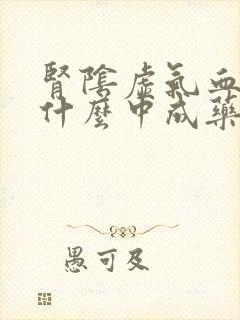 腎陰虛氣血
什麼中成藥
愚可及